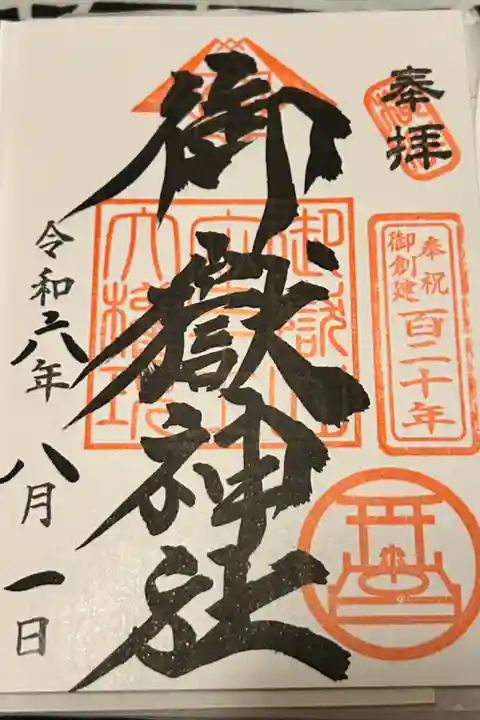 奉拝
奉祝
御創建
百二十年
御嶽神社
令和六年
八月一日